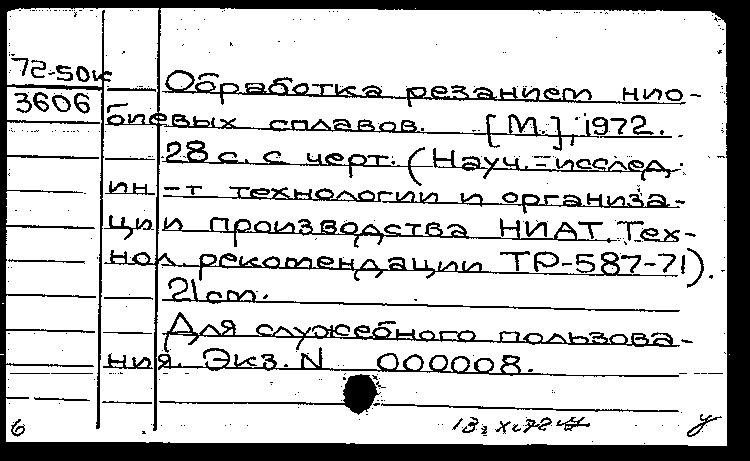 72-50к
3606
Обработка резанием нио-
биевых сплавов. [М.], 1972.
28 с. с черт. (Науч.-исслед.
ин-т технологии и организа-
ции производства НИАТ. Тех-
нол. рекомендации ТР-587-71).
21 см.
Для служебного пользова-
ния. Экз. N 000008.
6
у